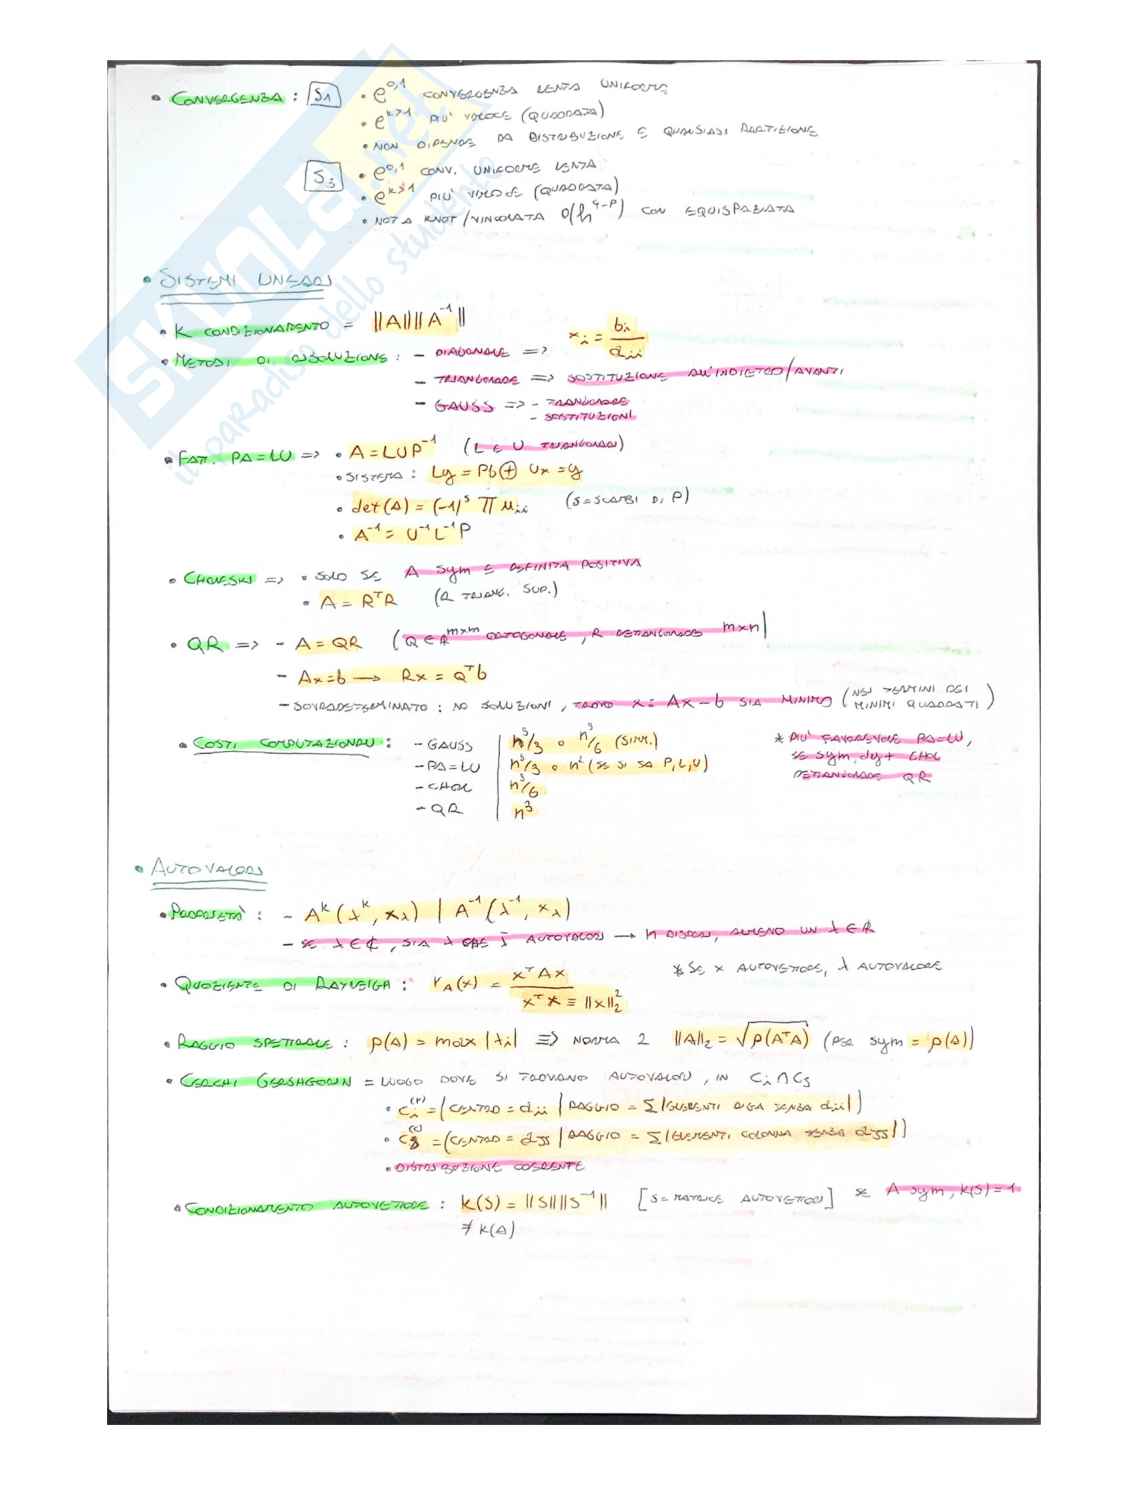 • CONVERGENZA : S1 • e^0,1 CONVERGENZA LENTA UNIFORME
• e^k>1 PIU' VELOCE (QUADRATA)
• NON DIPENDE DA DISTRIBUZIONE E QUALSIASI PARTIZIONE
S3 • e^0,1 CONV. UNIFORME LENTA
• e^k>1 PIU' VELOCE (QUADRATA)
• NOT A KNOT/VINCOLATA O(h^4-P) CON EQUISPAZIATA
• SISTEMI LINEARI
• K CONDIZIONAMENTO = ||A|| ||A^-1||
• METODI DI RISOLUZIONE : - DIAGONALE => x_i = b_i / d_ii
- TRIANGOLARE => SOSTITUZIONE ALL'INDIETRO/AVANTI
- GAUSS => - TRIANGOLARE
- SOSTITUZIONI
• FATT. PA=LU => • A = LUP^-1 (L E U TRIANGOLARI)
• SISTEMA : Ly = Pb ⊕ Ux = y
• det(A) = (-1)^s ∏ u_ii (S=SCAMBI DI P)
• A^-1 = U^-1 L^-1 P
• CHOLESKI => • SOLO SE A SYM E DEFINITA POSITIVA
• A = R^T R (R TRIANG. SUP.)
• QR => - A = QR (Q ∈ R^m×m ORTOGONALE, R RETANGOLARE m×n)
- Ax=b → Rx = Q^T b
- SOVRADETERMINATO : NO SOLUZIONI, TROVO x : Ax-b SIA MINIMO (NEI TERMINI DEI MINIMI QUADRATI)
• COSTI COMPUTAZIONALI : - GAUSS | n^3/3 o n^3/6 (SIMM.)
- PA=LU | n^3/3 o n^2 (SE SI SA P,L,U)
- CHOL | n^3/6
- QR | n^3
* PIU' FAVOREVOLE PA=LU,
SE SYM, dy+ CHOL
RETTANGOLARE QR
• AUTOVALORI
• PROPRIETA' : - A^k (λ^k, x_λ) | A^-1 (λ^-1, x_λ)
- SE λ ∈ ₵, SIA λ CHE λ̄ AUTOVALORI → n DISPARI, ALMENO UN λ ∈ R
• QUOZIENTE DI RAYLEIGH : r_A(x) = x^T Ax / x^T x = ||x||_2^2
* SE x AUTOVETTORE, λ AUTOVALORE
• RAGGIO SPETTRALE : ρ(A) = max |λ_i| => NORMA 2 ||A||_2 = √ρ(A^T A) (PER SYM = ρ(A))
• CERCHI GERSHGORIN = LUOGO DOVE SI TROVANO AUTOVALORI, IN C_i ∩ C_J
• C_i^(r) = (CENTRO = d_ii | RAGGIO = ∑ |ELEMENTI RIGA SENZA d_ii|)
• C_J^(c) = (CENTRO = d_JJ | RAGGIO = ∑ |ELEMENTI COLONNA SENZA d_JJ|)
• DISTRIBUZIONE COERENTE
• CONDIZIONAMENTO AUTOVETTORE : K(S) = ||S|| ||S^-1|| [S = MATRICE AUTOVETTORI] SE A SYM, K(S) = 1
≠ K(A)
SKUOLA.net
il paradiso dello studente